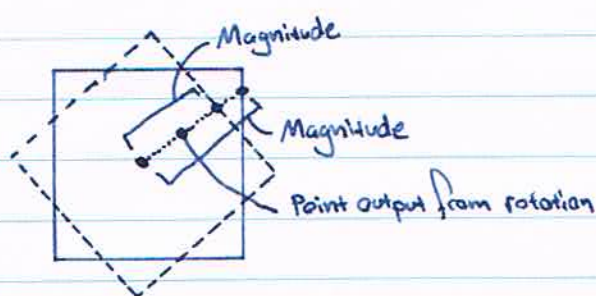 Magnitude
Magnitude
Point output from rotation